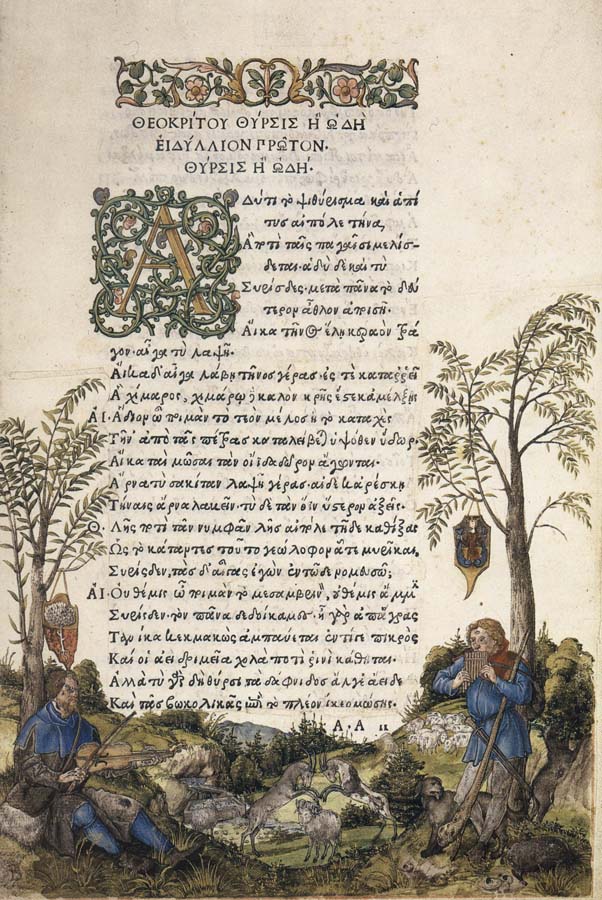 ΘΕΟΚΡΙΤΟΥ ΘΥΡΣΙΣ Ἢ ᾨΔΗ
ΕΙΔΥΛΛΙΟΝ ΠΡΩΤΟΝ.
ΘΥΡΣΙΣ Ἢ ᾨΔΗ.
Αδύ τι τὸ ψιθύρισμα καὶ ἁ πί
τυς αἰπόλε τήνα,
Ἃ ποτὶ ταῖς παγαῖσι μελίσ-
δεται· ἁδὺ δὲ καὶ τὺ
Συρίσδες· μετὰ πᾶνα τὸ δεύ
τερον ἆθλον ἀποισῇ.
Αἴκα τῆνος ἕλῃ κεραὸν τρά
γον· αἶγα τὺ λαψῇ.
Αἴκα δ' αἶγα λάβῃ τῆνος γέρας ἐς τὲ καταρρεῖ
Ἁ χίμαρος, χιμάρω δὲ καλὸν κρῆς ἔστε κ' ἀμέλξῃς
ΑΙ. Ἅδιον ὦ ποιμὰν τὸ τεὸν μέλος ἢ τὸ καταχὲς
Τῆν' ἀπὸ τᾶς πέτρας καταλείβεται ὑψόθεν ὕδωρ.
Αἴκα ταὶ μῶσαι τὰν οἴιδα δῶρον ἄγωνται.
Ἄρνα τὺ σακίταν λαψῇ γέρας· αἰ δέ κ' ἀρέσκῃ
Τήναις ἄρνα λαβεῖν· τὺ δὲ τὰν ὄϊν ὕστερον ἀξεῖς.
Θ. Λῇς ποτὶ τᾶν νυμφᾶν λῇς αἰπόλε τῇδε καθίξας
Ὡς τὸ κάταντες τοῦτο γεώλοφον ᾇτε μυρῖκαι,
Συρίσδεν, τὰς δ' αἶγας ἐγὼν ἐν τῷδε νομευσῶ;
ΑΙ. Οὐ θέμις ὦ ποιμὰν τὸ μεσαμβρινὸν, οὐ θέμις ἄμμιν
Συρίσδεν· τὸν πᾶνα δεδοίκαμες· ἦ γὰρ ἀπ' ἄγρας
Τανίκα κεκμακὼς ἀμπαύεται· ἐντί γε πικρὸς
Καί οἱ ἀεὶ δριμεῖα χολὰ ποτὶ ῥινὶ κάθηται.
Ἀλλὰ τὺ γὰρ δὴ θύρσι τὰ δάφνιδος ἄλγε' ἄειδε
Καὶ τᾶς βωκολικᾶς ἐπὶ τὸ πλέον ἵκεο μώσης.
Α.Α ii